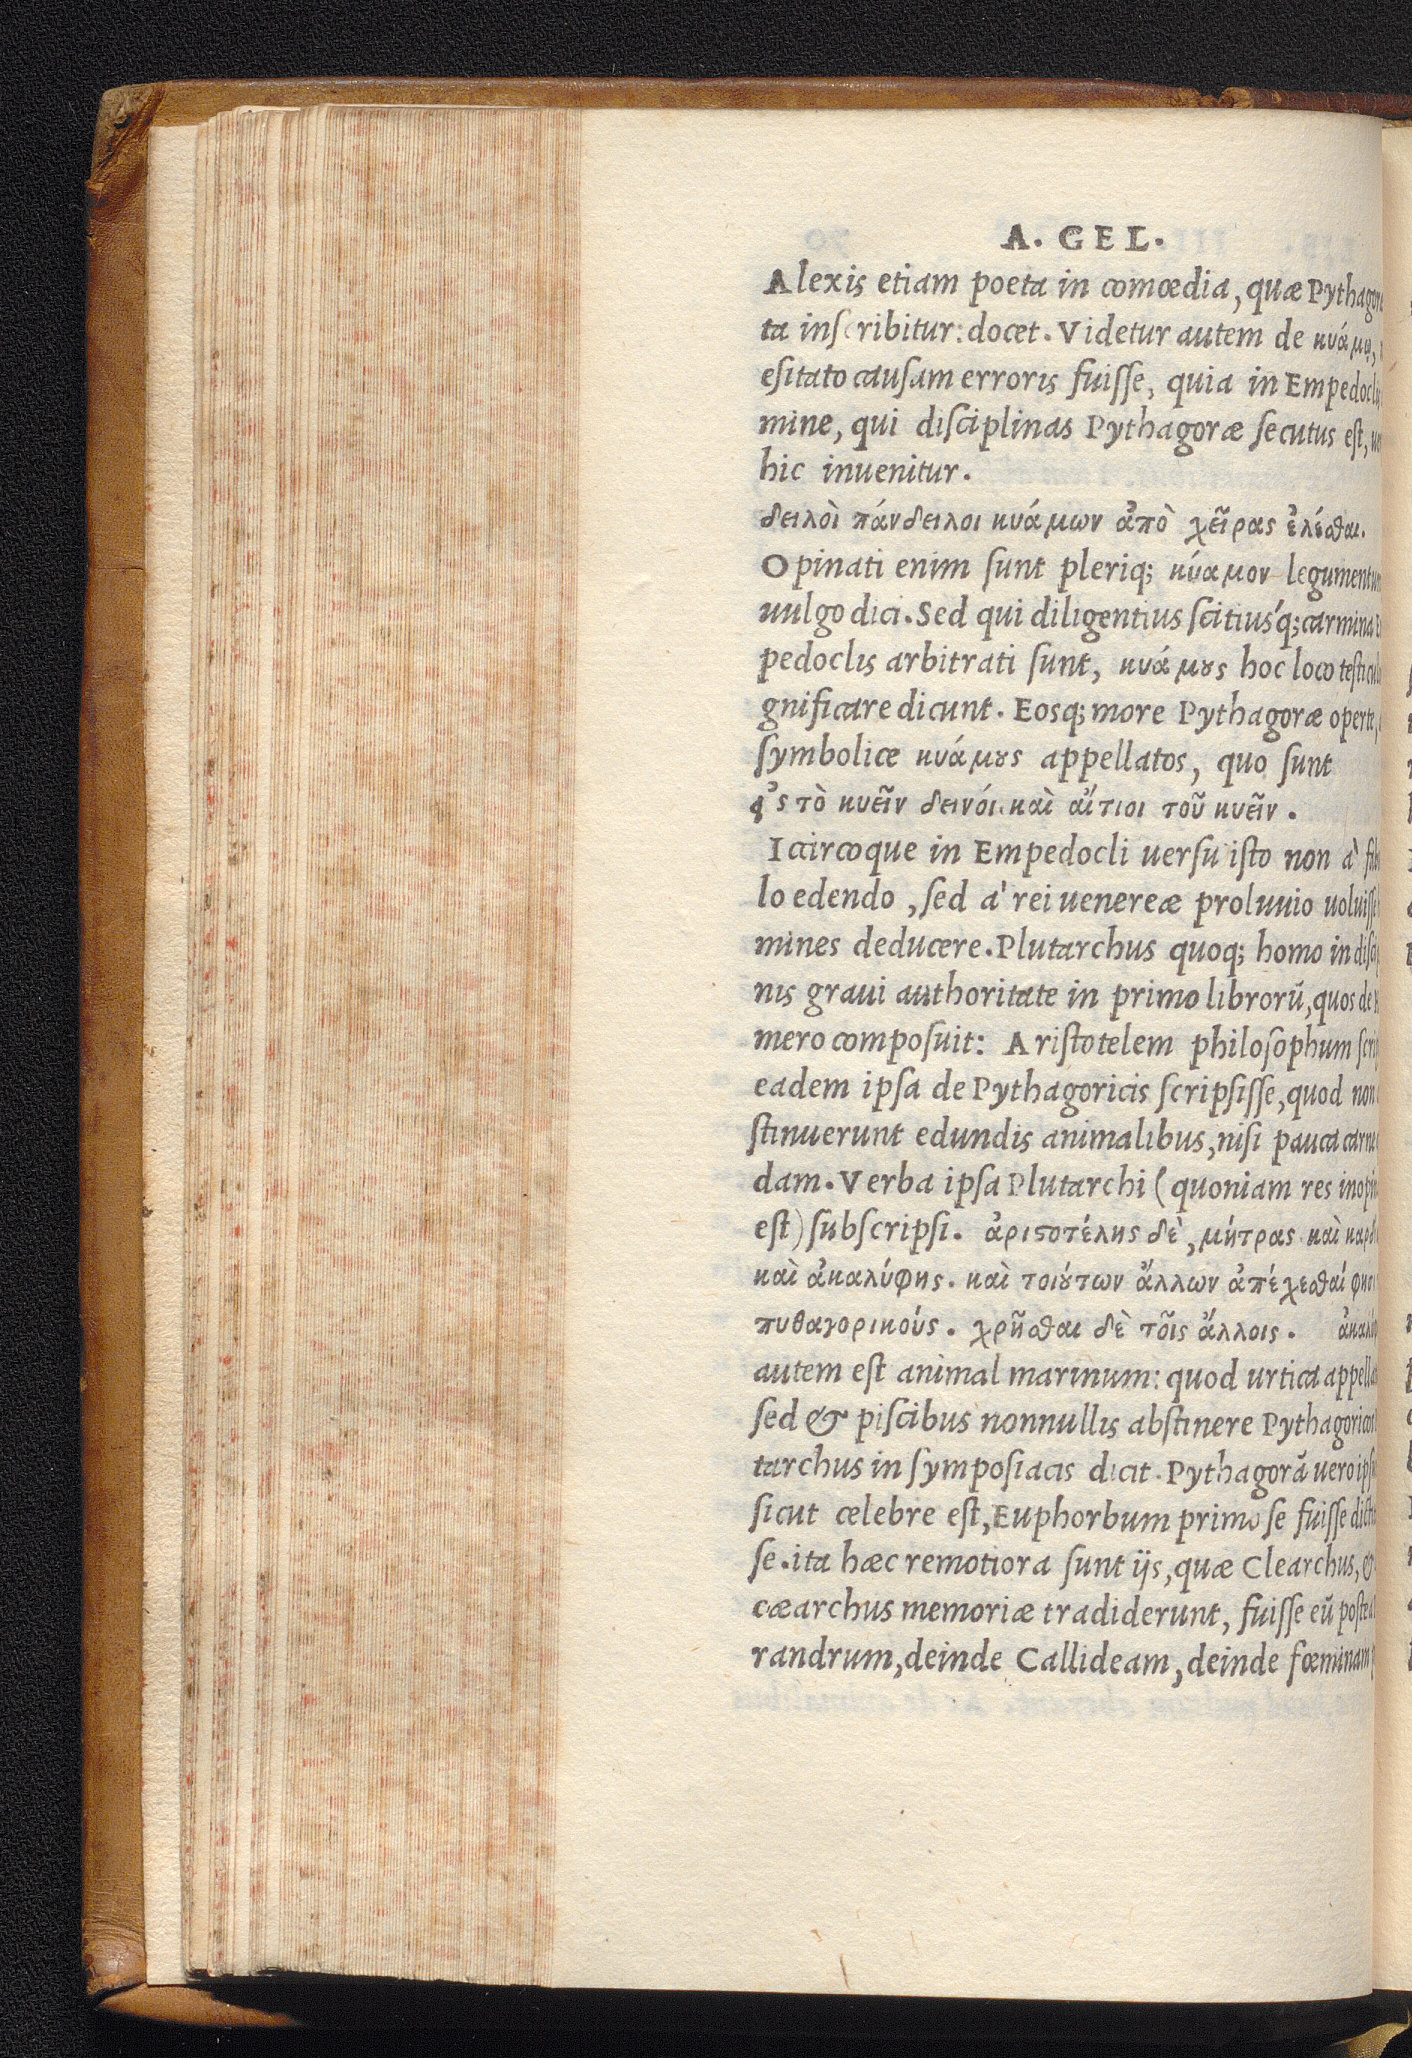 A. GEL.
Alexis etiam poeta in comœdia, quæ Pythagor
ta inscribitur: docet. Videtur autem de κυάμῳ,
esitato causam erroris fuisse, quia in Empedocl
mine, qui disciplinas Pythagoræ secutus est,
hic inuenitur.
δειλοὶ πάνδειλοι κυάμων ἀπὸ χεῖρας ἑλέσθαι.
Opinati enim sunt pleriq; κύαμον legumentum
uulgo dici. Sed qui diligentius scitius'q; carmina
pedoclis arbitrati sunt, κυάμους hoc loco testicul
gnificare dicunt. Eosq; more Pythagoræ operte,
symbolice κυάμους appellatos, quo sunt
ὡς τὸ κυεῖν δεινόι καὶ αἴτιοι τοῦ κυεῖν.
Iccircoque in Empedocli uersu isto non à
lo edendo, sed à rei uenereæ proluuio uoluisse
mines deducere. Plutarchus quoq; homo in disci
nis graui authoritate in primo librorũ, quos de
mero composuit: Aristotelem philosophum scri
eadem ipsa de Pythagoricis scripsisse, quod non
stinuerunt edundis animalibus, nisi pauca carne
dam. Verba ipsa Plutarchi (quoniam res inopi
est) subscripsi. ἀριστοτέλης δὲ, μήτρας καὶ καρδ
καὶ ἀκαλύφης. καὶ τοιούτων ἄλλων ἀπέχεσθαί φησι
πυθαγορικούς. χρῆσθαι δὲ τοῖς ἄλλοις. ἀκαλύ
autem est animal marinum: quod urtica appella
sed & piscibus nonnullis abstinere Pythagoricos
tarchus in symposiacis dicit. Pythagorã uero ips
sicut celebre est, Euphorbum primo se fuisse dict
se. ita hæc remotiora sunt ijs, quæ Clearchus, &
cæarchus memoriæ tradiderunt, fuisse eũ postea
randrum, deinde Callideam, deinde fœminam